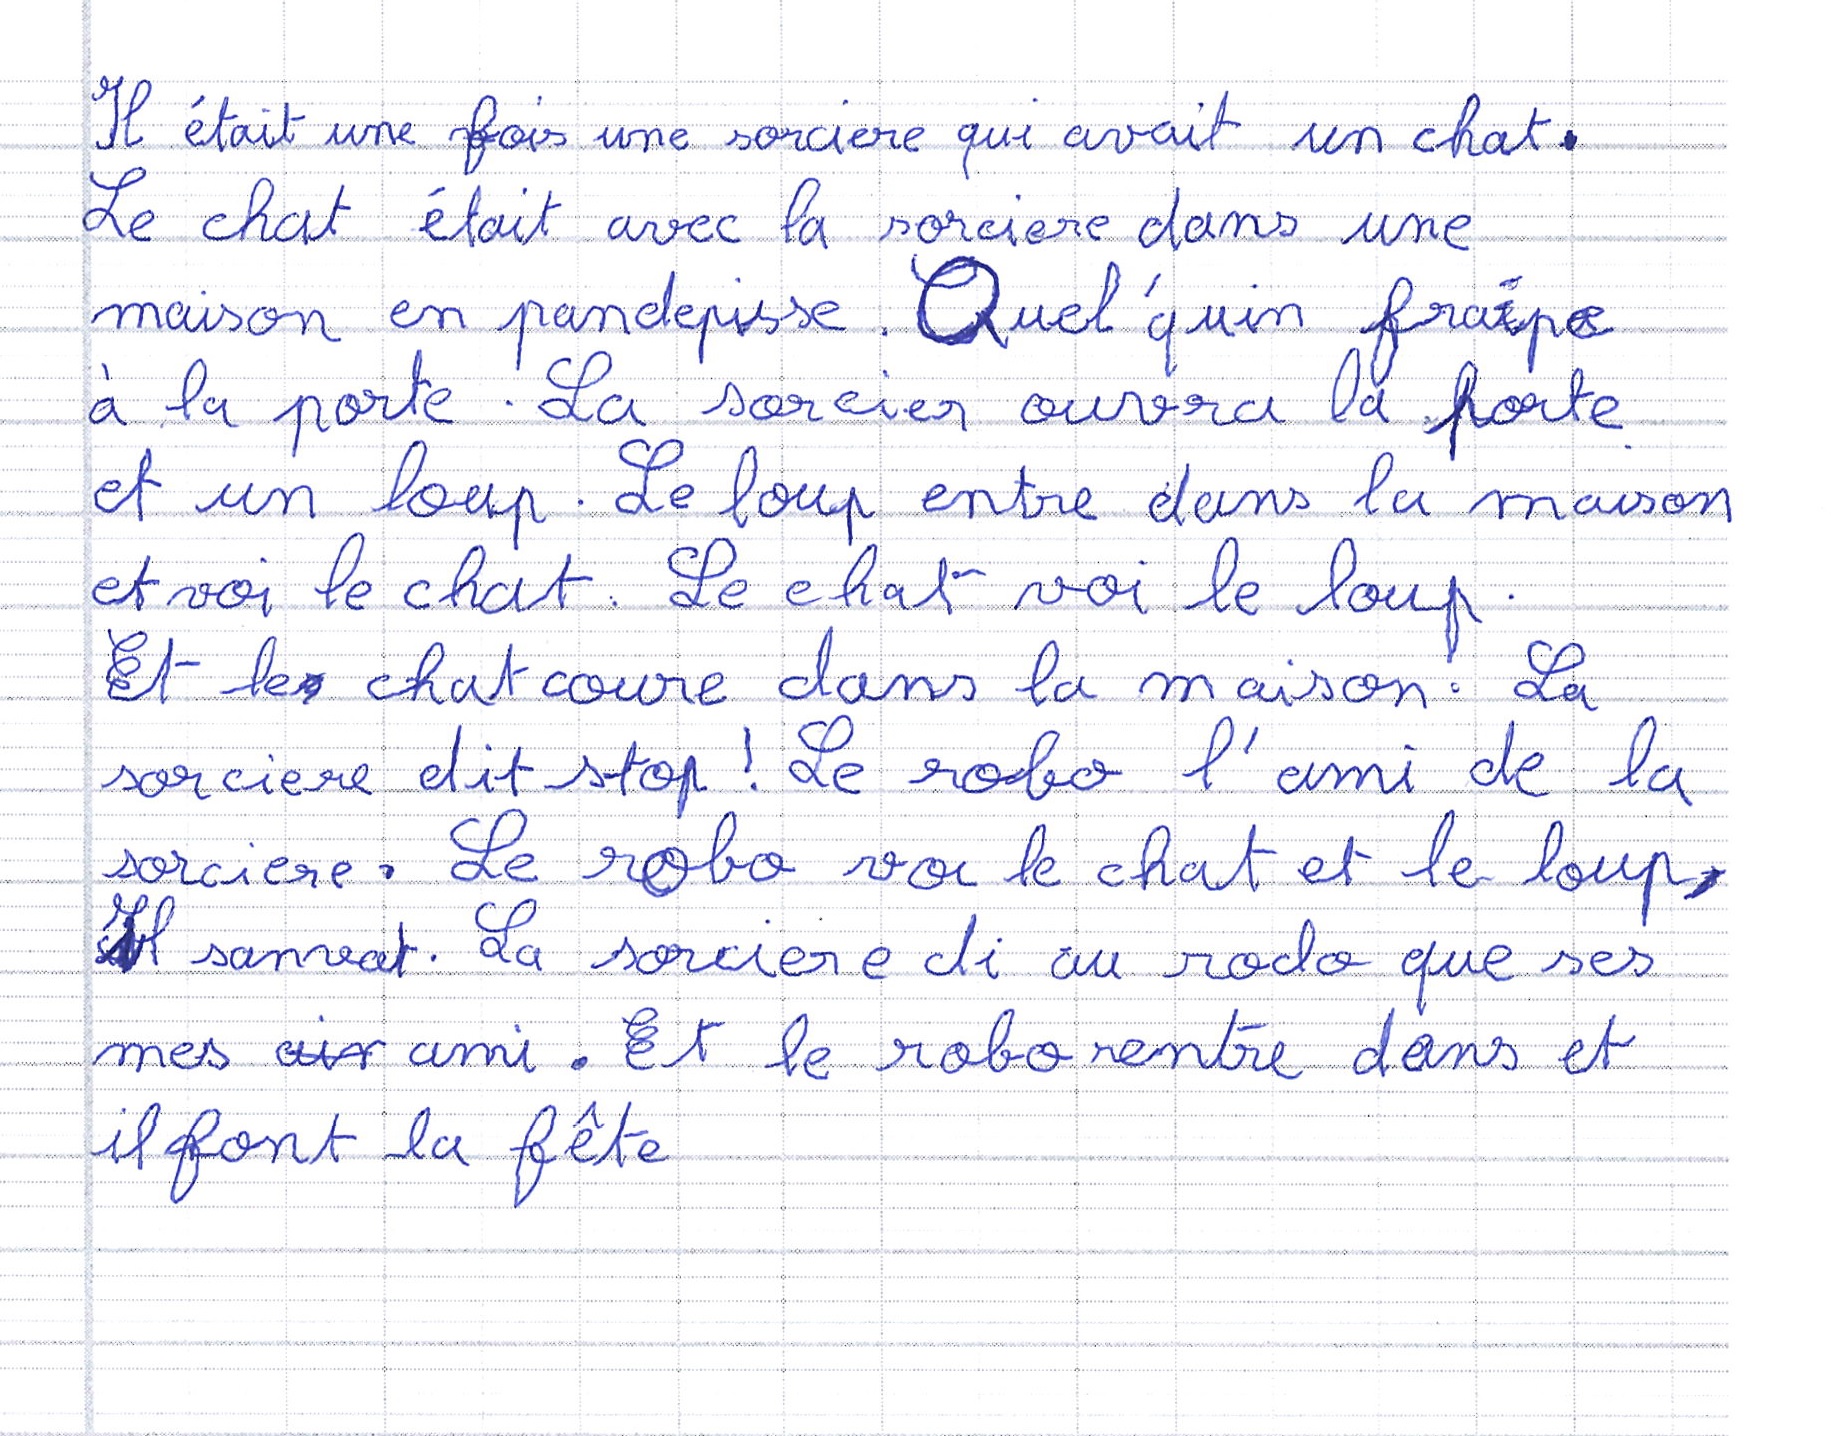 Il était une fois une sorciere qui avait un chat.
Le chat était avec la sorciere dans une
maison en pandepisse. Quel'quin fraipe
à la porte. La sorcier ouvra la porte
et un loup. Le loup entre dans la maison
et voi le chat. Le chat voi le loup.
Et le chat coure dans la maison. La
sorciere dit stop! Le robo l'ami de la
sorciere. Le robo voi le chat et le loup,
Il sanvat. La sorciere di au rodo que ses
mes ami. Et le robo rentre dans et
il font la fête